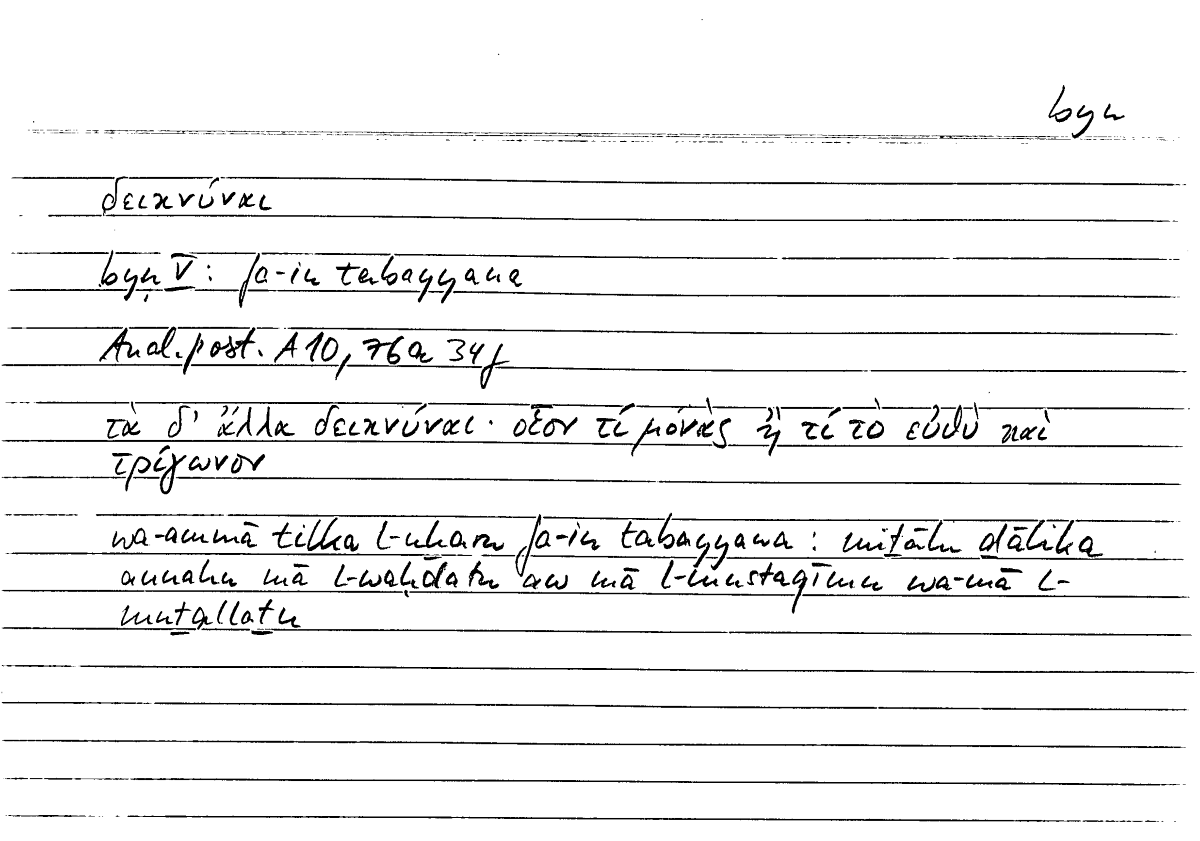 byn
δεικνύναι
byn V: fa-in tabayyana
Anal. post. A 10, 76a 34f
τὰ δ' ἄλλα δεικνύναι· οἷον τί μόνὰς ἢ τί τὸ εὐθὺ καὶ
τρίγωνον
wa-ammā tilka l-uḫaru fa-in tabayyana : miṯālu ḏālika
annahu mā l-waḥdatu aw mā l-mustaqīmu wa-mā l-
muṯallaṯu